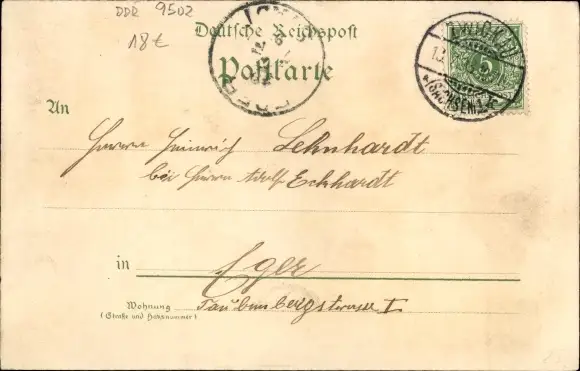 DDR 9502
18 €
Deutsche Reichspost
Postkarte
ZWICKAU
(SACHSEN) 1.
5
An
Herrn Heinrich Lehnhardt
bei Herrn Adolf Eckhardt
in Eger
Wohnung
(Straße und Hausnummer)